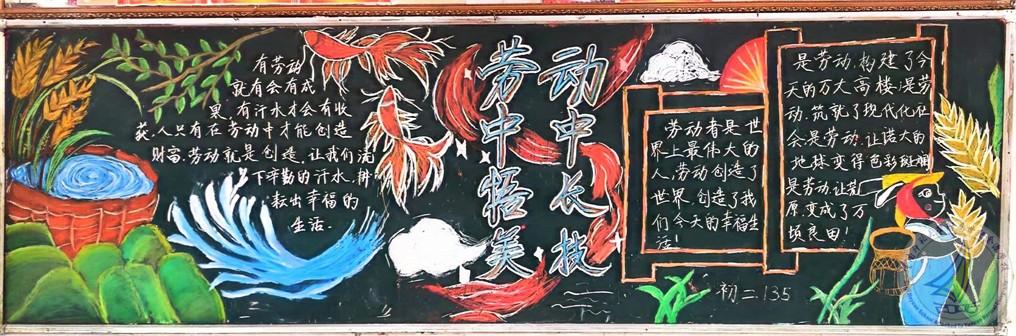 有劳动
就有会有成
果,有汗水才会有收
获.人只有在劳动中才能创造
财富.劳动就是创造,让我们洒
下辛勤的汗水,耕
耘出幸福的
生活.
劳动
中中
悟长
美技
劳动者是世
界上最伟大的
人,劳动创造了
世界,创造了我
们今天的幸福生
活!
是劳动,构建了今
天的万大高楼;是劳
动,筑就了现代化社
会;是劳动,让诺大的
地球变得色彩斑斓
是劳动,让荒
原变成了万
顷良田!
初二.135